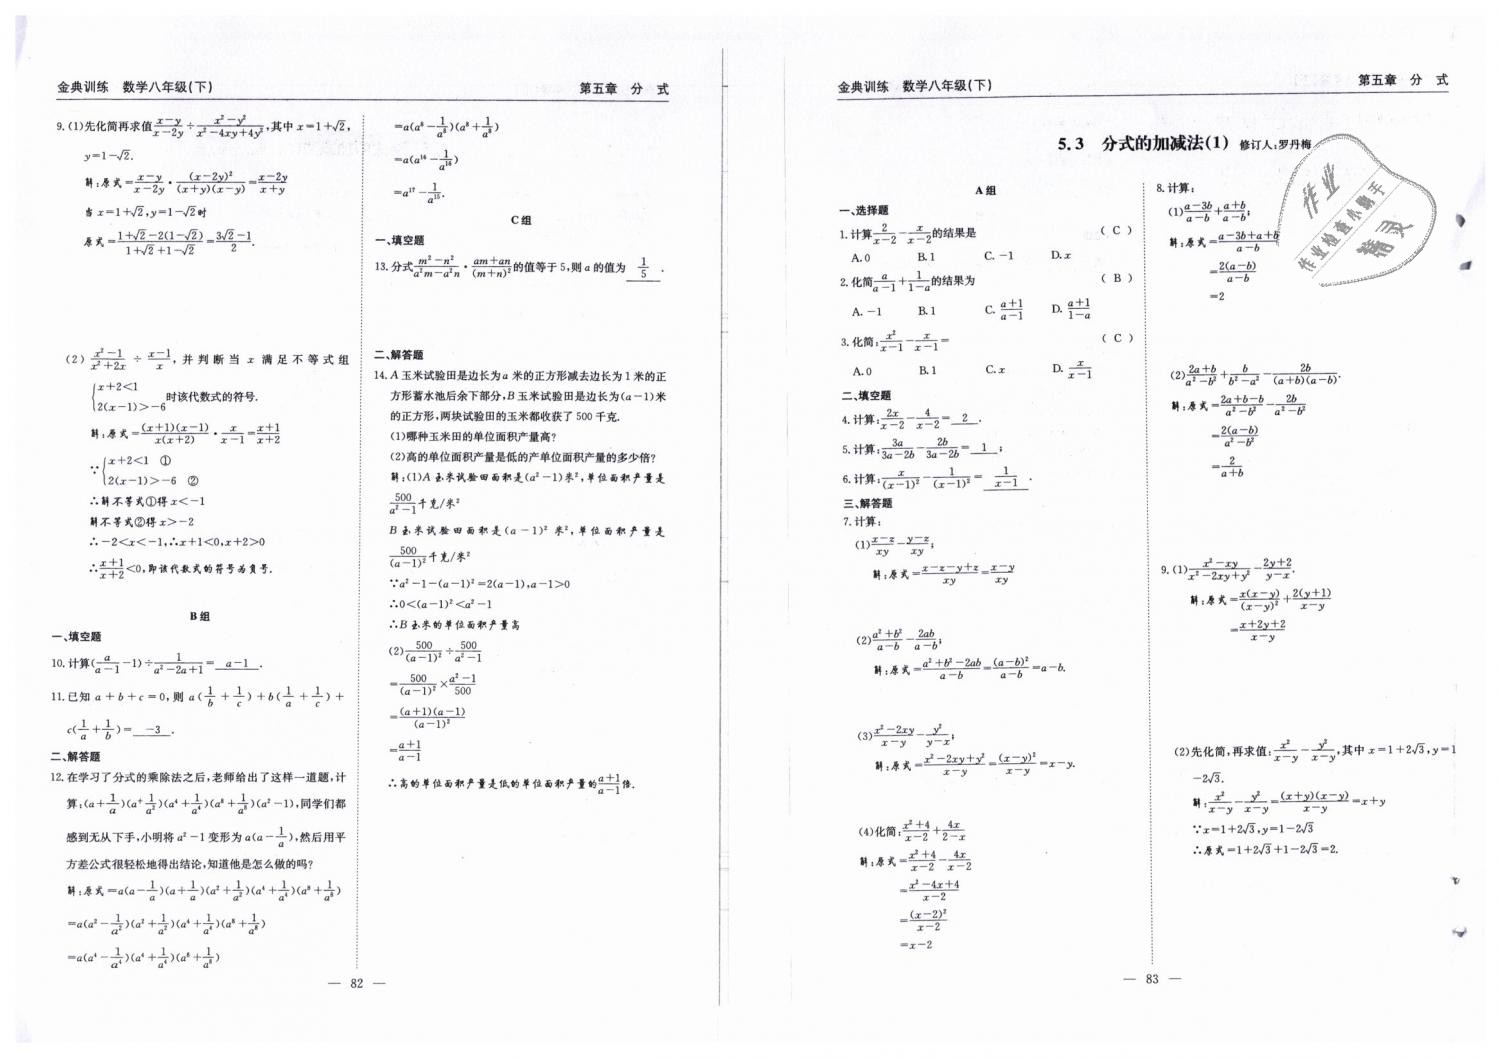 金典训练 数学八年级(下) 第五章 分 式
9.(1)先化简再求值 (x-y)/(x-2y) ÷ (x²-y²)/(x²-4xy+4y²),其中 x=1+√2,
y=1-√2.
解:原式=(x-y)/(x-2y)·(x-2y)²/((x+y)(x-y))=(x-2y)/(x+y)
当 x=1+√2,y=1-√2时
原式=(1+√2-2(1-√2))/(1+√2+1-√2)=(3√2-1)/2.
(2) (x²-1)/(x²+2x) ÷ (x-1)/x,并判断当 x 满足不等式组
{x+2<1
2(x-1)>-6 时该代数式的符号.
解:原式=((x+1)(x-1))/(x(x+2))·x/(x-1)=(x+1)/(x+2)
∵{x+2<1 ①
2(x-1)>-6 ②
∴解不等式①得 x<-1
解不等式②得 x>-2
∴-2<x<-1,∴x+1<0,x+2>0
∴(x+1)/(x+2)<0,即该代数式的符号为负号.
B 组
一、填空题
10.计算(a/(a-1)-1)÷1/(a²-2a+1)= a-1 .
11.已知 a+b+c=0,则 a(1/b+1/c)+b(1/a+1/c)+
c(1/a+1/b)= -3 .
二、解答题
12.在学习了分式的乘除法之后,老师给出了这样一道题,计
算:(a+1/a)(a²+1/a²)(a⁴+1/a⁴)(a⁸+1/a⁸)(a²-1),同学们都
感到无从下手,小明将 a²-1 变形为 a(a-1/a),然后用平
方差公式很轻松地得出结论,知道他是怎么做的吗?
解:原式=a(a-1/a)(a+1/a)(a²+1/a²)(a⁴+1/a⁴)(a⁸+1/a⁸)
=a(a²-1/a²)(a²+1/a²)(a⁴+1/a⁴)(a⁸+1/a⁸)
=a(a⁴-1/a⁴)(a⁴+1/a⁴)(a⁸+1/a⁸)
=a(a⁸-1/a⁸)(a⁸+1/a⁸)
=a(a¹⁶-1/a¹⁶)
=a¹⁷-1/a¹⁵.
C 组
一、填空题
13.分式 (m²-n²)/(a²m-a²n)·(am+an)/(m+n)² 的值等于 5,则 a 的值为 1/5 .
二、解答题
14.A 玉米试验田是边长为 a 米的正方形减去边长为 1 米的正
方形蓄水池后余下部分,B 玉米试验田是边长为(a-1)米
的正方形,两块试验田的玉米都收获了 500 千克.
(1)哪种玉米田的单位面积产量高?
(2)高的单位面积产量是低的产单位面积产量的多少倍?
解:(1)A 玉米试验田面积是(a²-1)米²,单位面积产量是
500/(a²-1)千克/米²
B 玉米试验田面积是(a-1)² 米²,单位面积产量是
500/(a-1)²千克/米²
∵a²-1-(a-1)²=2(a-1),a-1>0
∴0<(a-1)²<a²-1
∴B 玉米的单位面积产量高
(2)500/(a-1)²÷500/(a²-1)
=500/(a-1)²×(a²-1)/500
=((a+1)(a-1))/(a-1)²
=(a+1)/(a-1)
∴高的单位面积产量是低的单位面积产量的(a+1)/(a-1)倍.
— 82 —
金典训练 数学八年级(下) 第五章 分 式
5.3 分式的加减法(1) 修订人:罗丹梅
A 组
一、选择题
1.计算 2/(x-2)-x/(x-2)的结果是 ( C )
A.0 B.1 C.-1 D.x
2.化简 a/(a-1)+1/(1-a)的结果为 ( B )
A.-1 B.1 C.(a+1)/(a-1) D.(a+1)/(1-a)
3.化简:x²/(x-1)-x/(x-1)= ( C )
A.0 B.1 C.x D.x/(x-1)
二、填空题
4.计算:2x/(x-2)-4/(x-2)= 2 .
5.计算:3a/(3a-2b)-2b/(3a-2b)= 1 ;
6.计算:x/(x-1)²-1/(x-1)²= 1/(x-1) .
三、解答题
7.计算:
(1)(x-z)/xy-(y-z)/xy;
解:原式=(x-z-y+z)/xy=(x-y)/xy
(2)(a²+b²)/(a-b)-2ab/(a-b);
解:原式=(a²+b²-2ab)/(a-b)=(a-b)²/(a-b)=a-b.
(3)(x²-2xy)/(x-y)-y²/(y-x);
解:原式=(x²-2xy+y²)/(x-y)=(x-y)²/(x-y)=x-y.
(4)化简:(x²+4)/(x-2)+4x/(2-x)
解:原式=(x²+4)/(x-2)-4x/(x-2)
=(x²-4x+4)/(x-2)
=(x-2)²/(x-2)
=x-2
8.计算:
(1)(a-3b)/(a-b)+(a+b)/(a-b);
解:原式=(a-3b+a+b)/(a-b)
=2(a-b)/(a-b)
=2
(2)(2a+b)/(a²-b²)+b/(b²-a²)-2b/((a+b)(a-b)).
解:原式=(2a+b-b)/(a²-b²)-2b/(a²-b²)
=2(a-b)/(a²-b²)
=2/(a+b)
9.(1)(x²-xy)/(x²-2xy+y²)-(2y+2)/(y-x).
解:原式=x(x-y)/(x-y)²+2(y+1)/(x-y)
=(x+2y+2)/(x-y)
(2)先化简,再求值:x²/(x-y)-y²/(x-y),其中 x=1+2√3,y=1
-2√3.
解:x²/(x-y)-y²/(x-y)=((x+y)(x-y))/(x-y)=x+y
∵x=1+2√3,y=1-2√3
∴原式=1+2√3+1-2√3=2.
— 83 —
作业
作业检查小助手
精灵